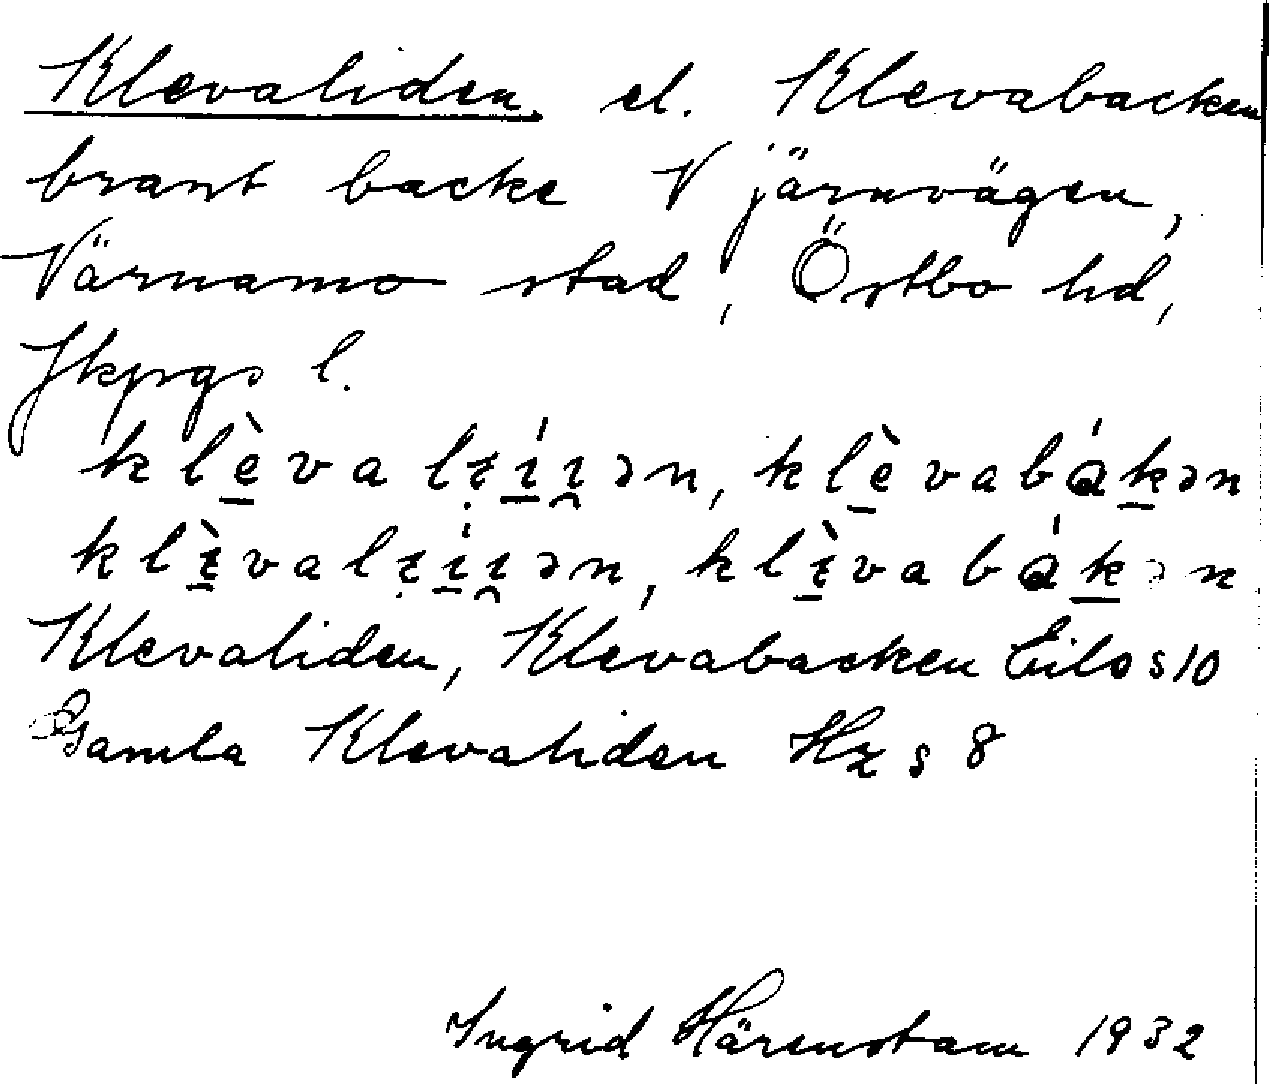 Klevaliden el. Klevabacken
brant backe V järnvägen,
Värnamo stad, Östbo hd,
Jkpgs l.
klèvalɪíɪən, klèvabákən
klɪ̀valɪíɪən, klɪ̀vabákən
Klevaliden, Klevabacken Eilo s 10
Gamla Klevaliden Hz s 8
Ingrid Härenstam 1932